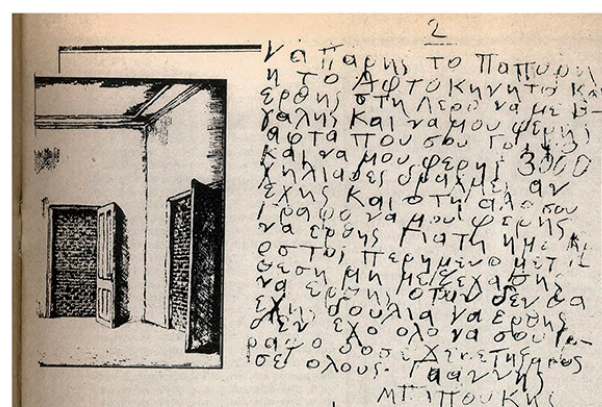 2
να παρης το
η το αφτοκηνητο
ερθης στη Λερο να με β-
γαλης και να μου φερης
αφτα που σου
και να μου φερης 3000
χηλιαδες δραχμες αν
εχης και οτη αλο σου
γραφο να μου φερης
να ερθης γιατη ημε
οστος περημενο με τι
θεση μη με ξεχασης
να ερθης οταν δεν θα
εχης δουλια να ερθης
δεν εχο ολο να σου γ-
ραψο δοσε
σε ολους. Γιαννης
Μπιπουκης